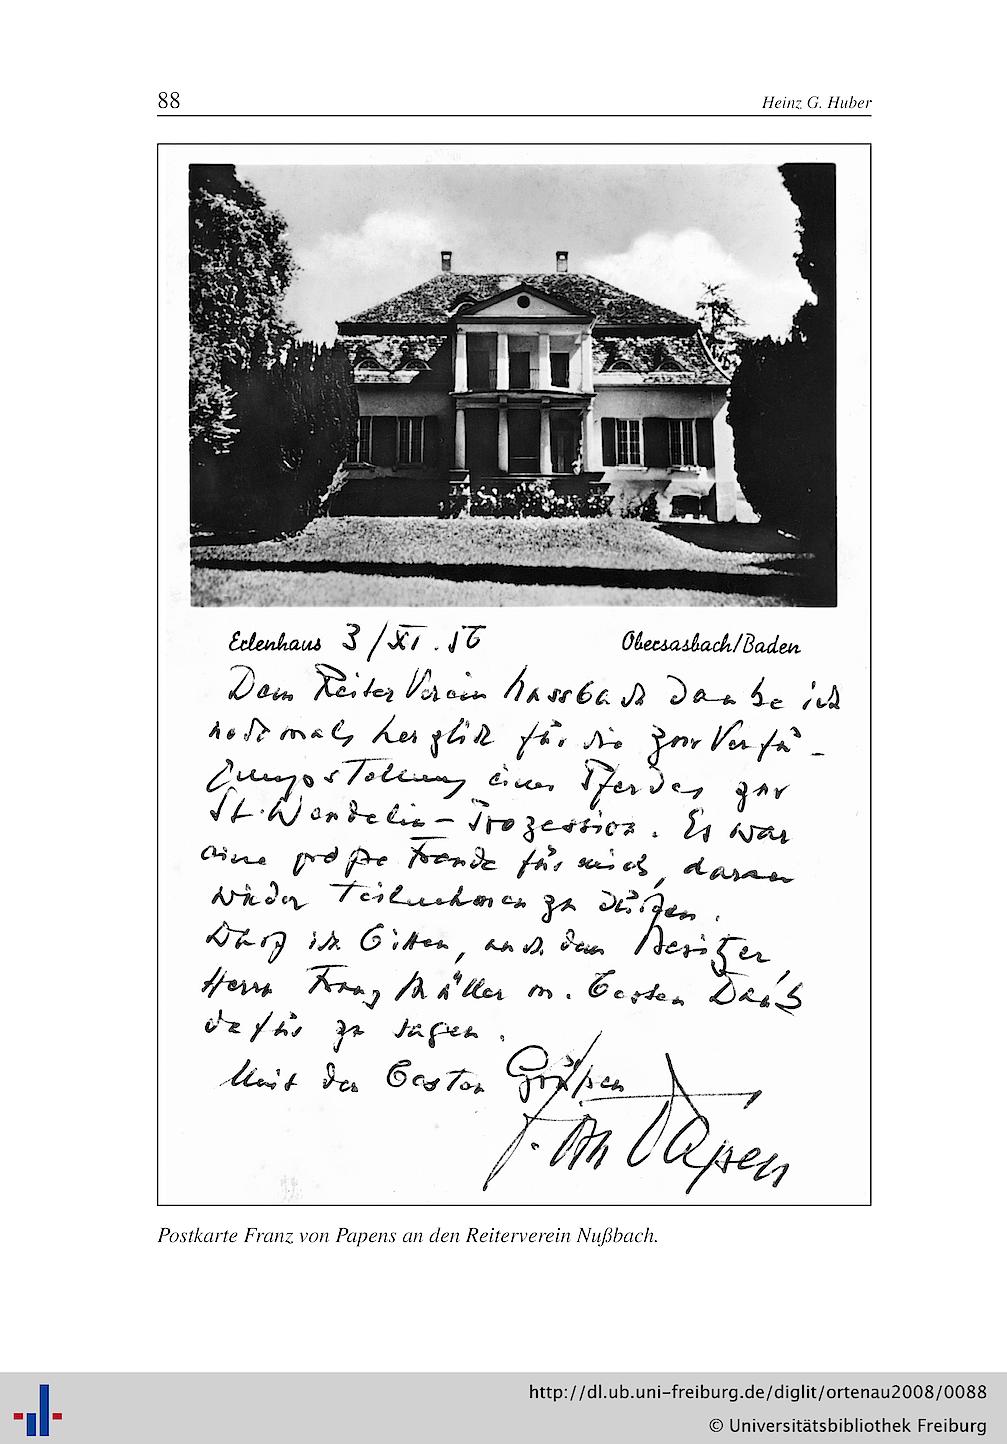 88
Heinz G. Huber
Erlenhaus 3/XI.56
Obersasbach/Baden
Dem Reiter Verein Nussbach danke ich
nochmals herzlich für die zur Verfü-
gungstellung eines Pferdes zur
St. Wendelin-Prozession. Es war
eine große Freude für mich, daran
wieder teilnehmen zu dürfen.
Darf ich bitten, auch dem Besitzer,
Herrn Franz Müller m. besten Dank
dafür zu sagen.
Mit den besten Grüßen
F. von Papen
Postkarte Franz von Papens an den Reiterverein Nußbach.
http://dl.ub.uni-freiburg.de/diglit/ortenau2008/0088
© Universitätsbibliothek Freiburg